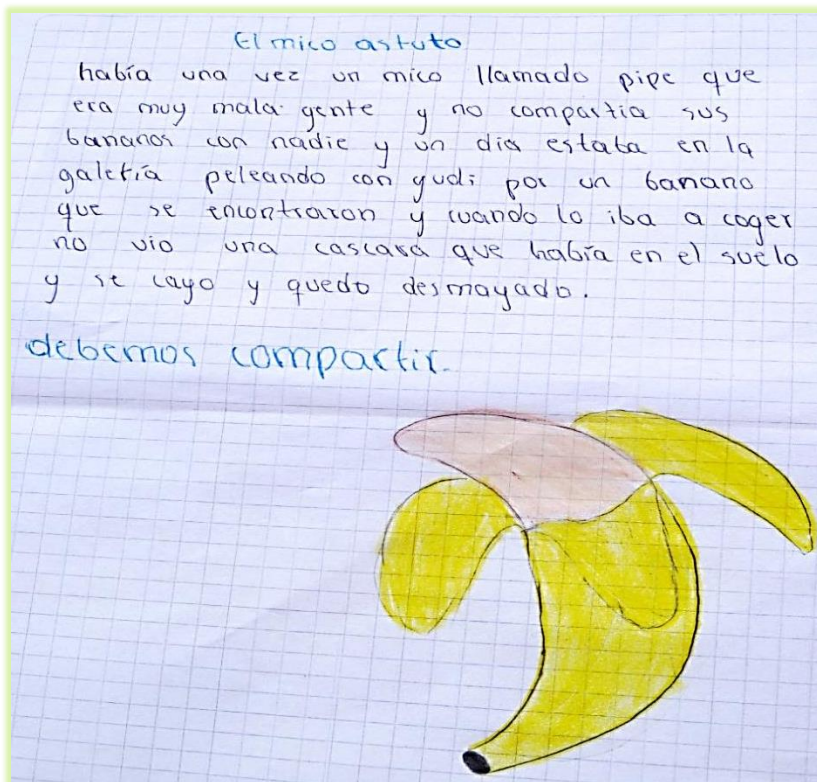 El mico astuto
había una vez un mico llamado pipe que
era muy mala gente y no compartia sus
bananos con nadie y un dia estaba en la
galería peleando con yudi por un banano
que se encontraron y cuando lo iba a coger
no vio una cascara que había en el suelo
y se cayo y quedo desmayado.
debemos compartir.